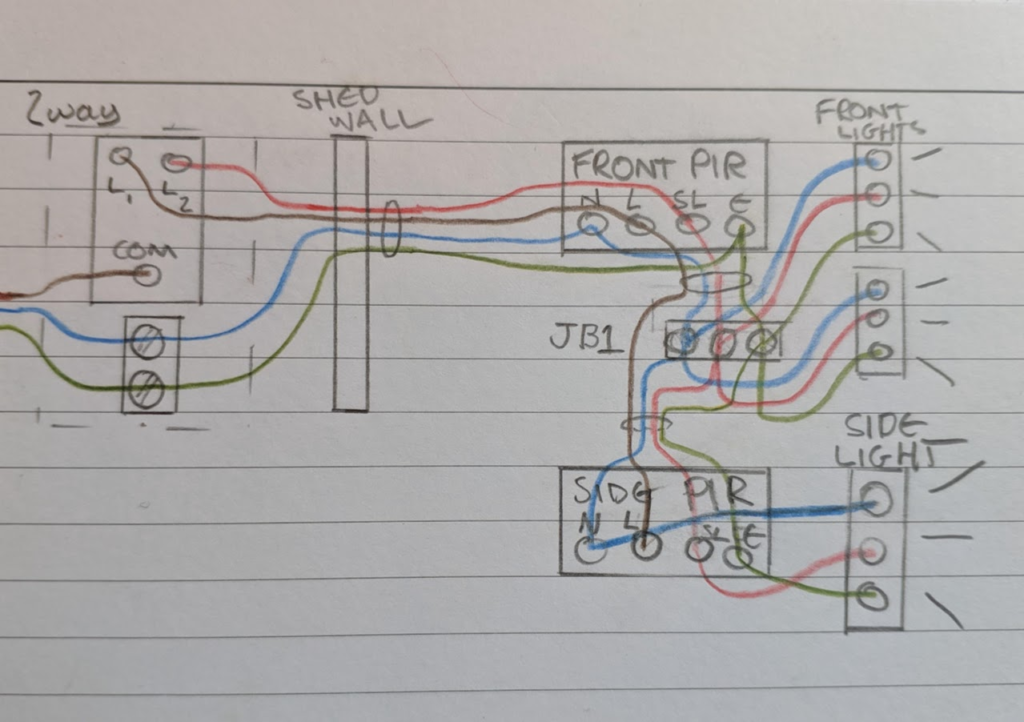 2way
SHED
WALL
FRONT
LIGHTS
FRONT PIR
L1 L2
N L SL E
COM
JB1
SIDE
LIGHT
SIDE PIR
N L SL E